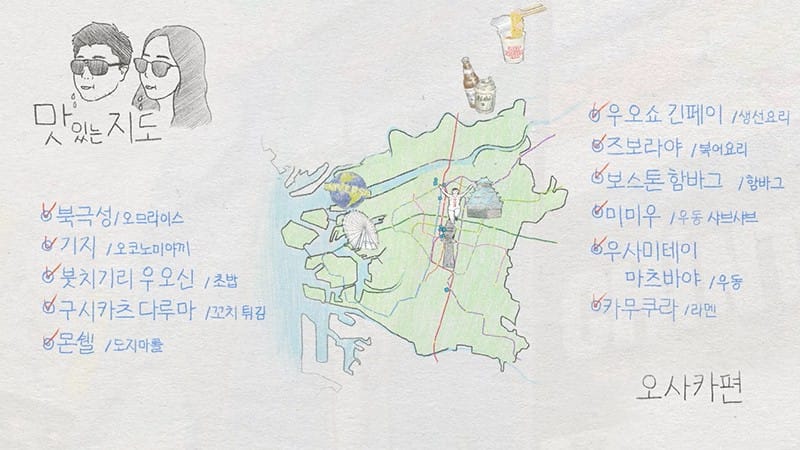 맛있는 지도
북극성 / 오므라이스
기지 / 오코노미야끼
붓치기리 우오신 / 초밥
구시카츠 다루마 / 꼬치 튀김
몬쉘 / 도지마롤
우오쇼 긴페이 / 생선요리
즈보라야 / 복어요리
보스톤 함바그 / 함바그
미미우 / 우동 샤브샤브
우사미테이
마츠바야 / 우동
카무쿠라 / 라멘
오사카편